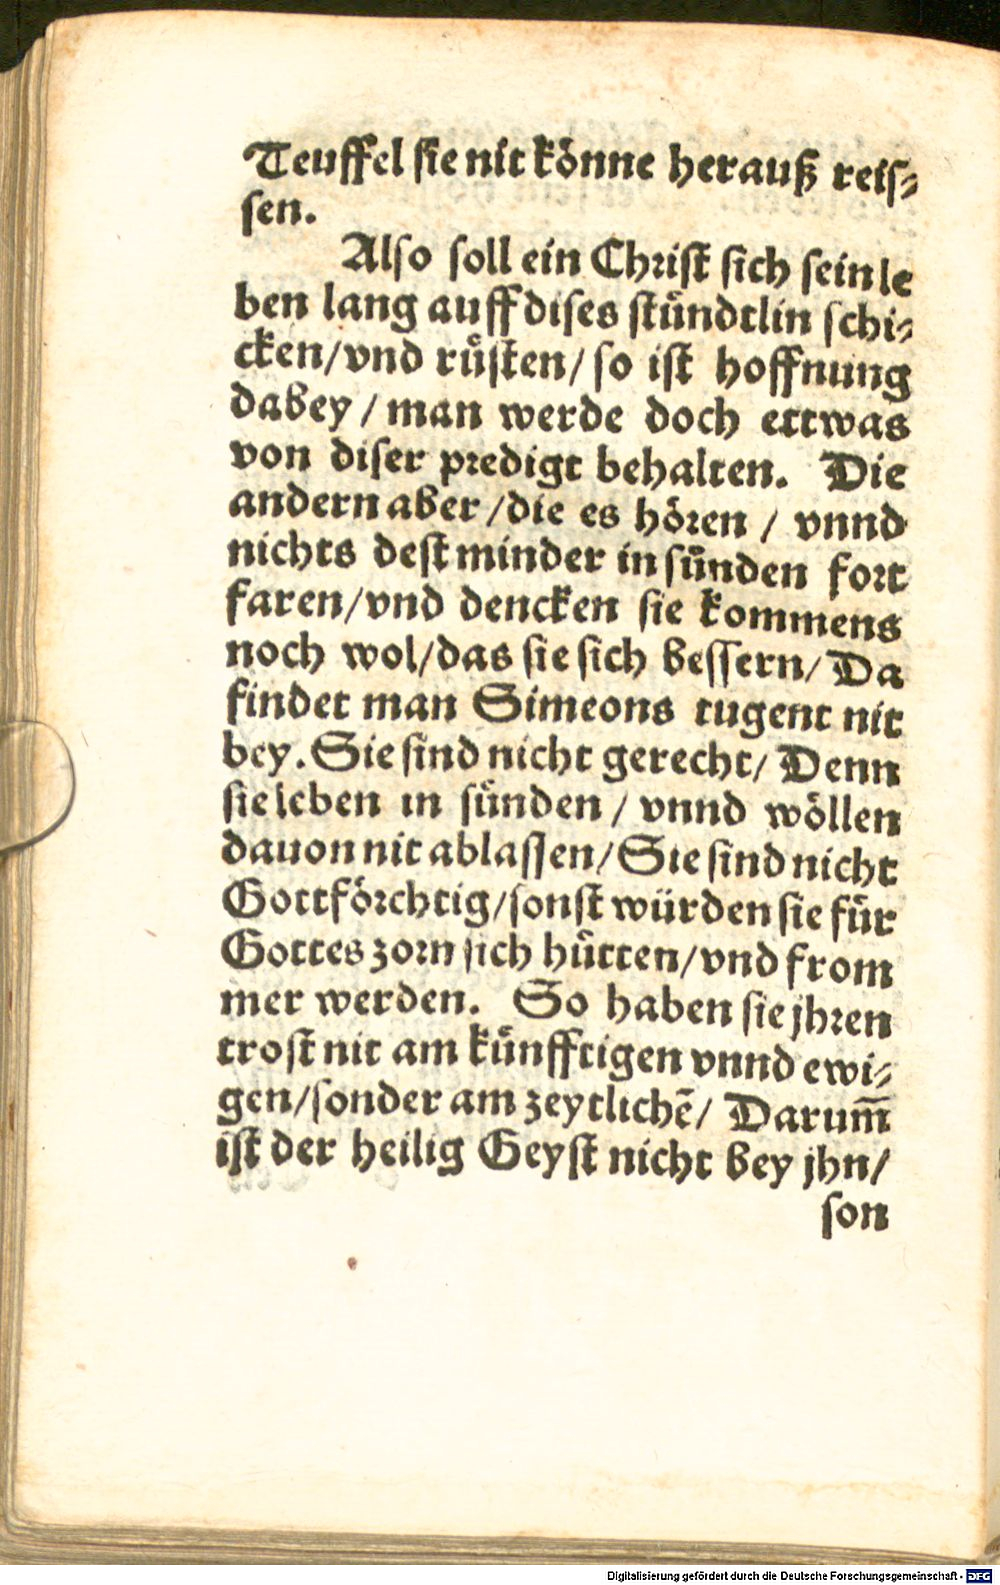 Teuffel ſie nit könne herauß reiſ⸗
ſen.
Alſo ſoll ein Chriſt ſich ſein le
ben lang auff diſes ſtündtlin ſchi⸗
cken/vnd rüſten/ ſo iſt hoffnung
dabey / man werde doch ettwas
von diſer predigt behalten. Die
andern aber /die es hören / vnnd
nichts deſt minder in ſünden fort
faren/vnd dencken ſie kommens
noch wol/das ſie ſich beſſern/ Da
findet man Simeons tugent nit
bey. Sie ſind nicht gerecht/ Denn
ſie leben in ſünden / vnnd wöllen
dauon nit ablaſſen/ Sie ſind nicht
Gottförchtig/ſonſt würden ſie für
Gottes zorn ſich hütten/vnd from
mer werden. So haben ſie jhren
troſt nit am künfftigen vnnd ewi⸗
gen/ſonder am zeytlichẽ/ Darum̃
iſt der heilig Geyſt nicht bey jhn/
ſon
Digitalisierung gefördert durch die Deutsche Forschungsgemeinschaft - DFG